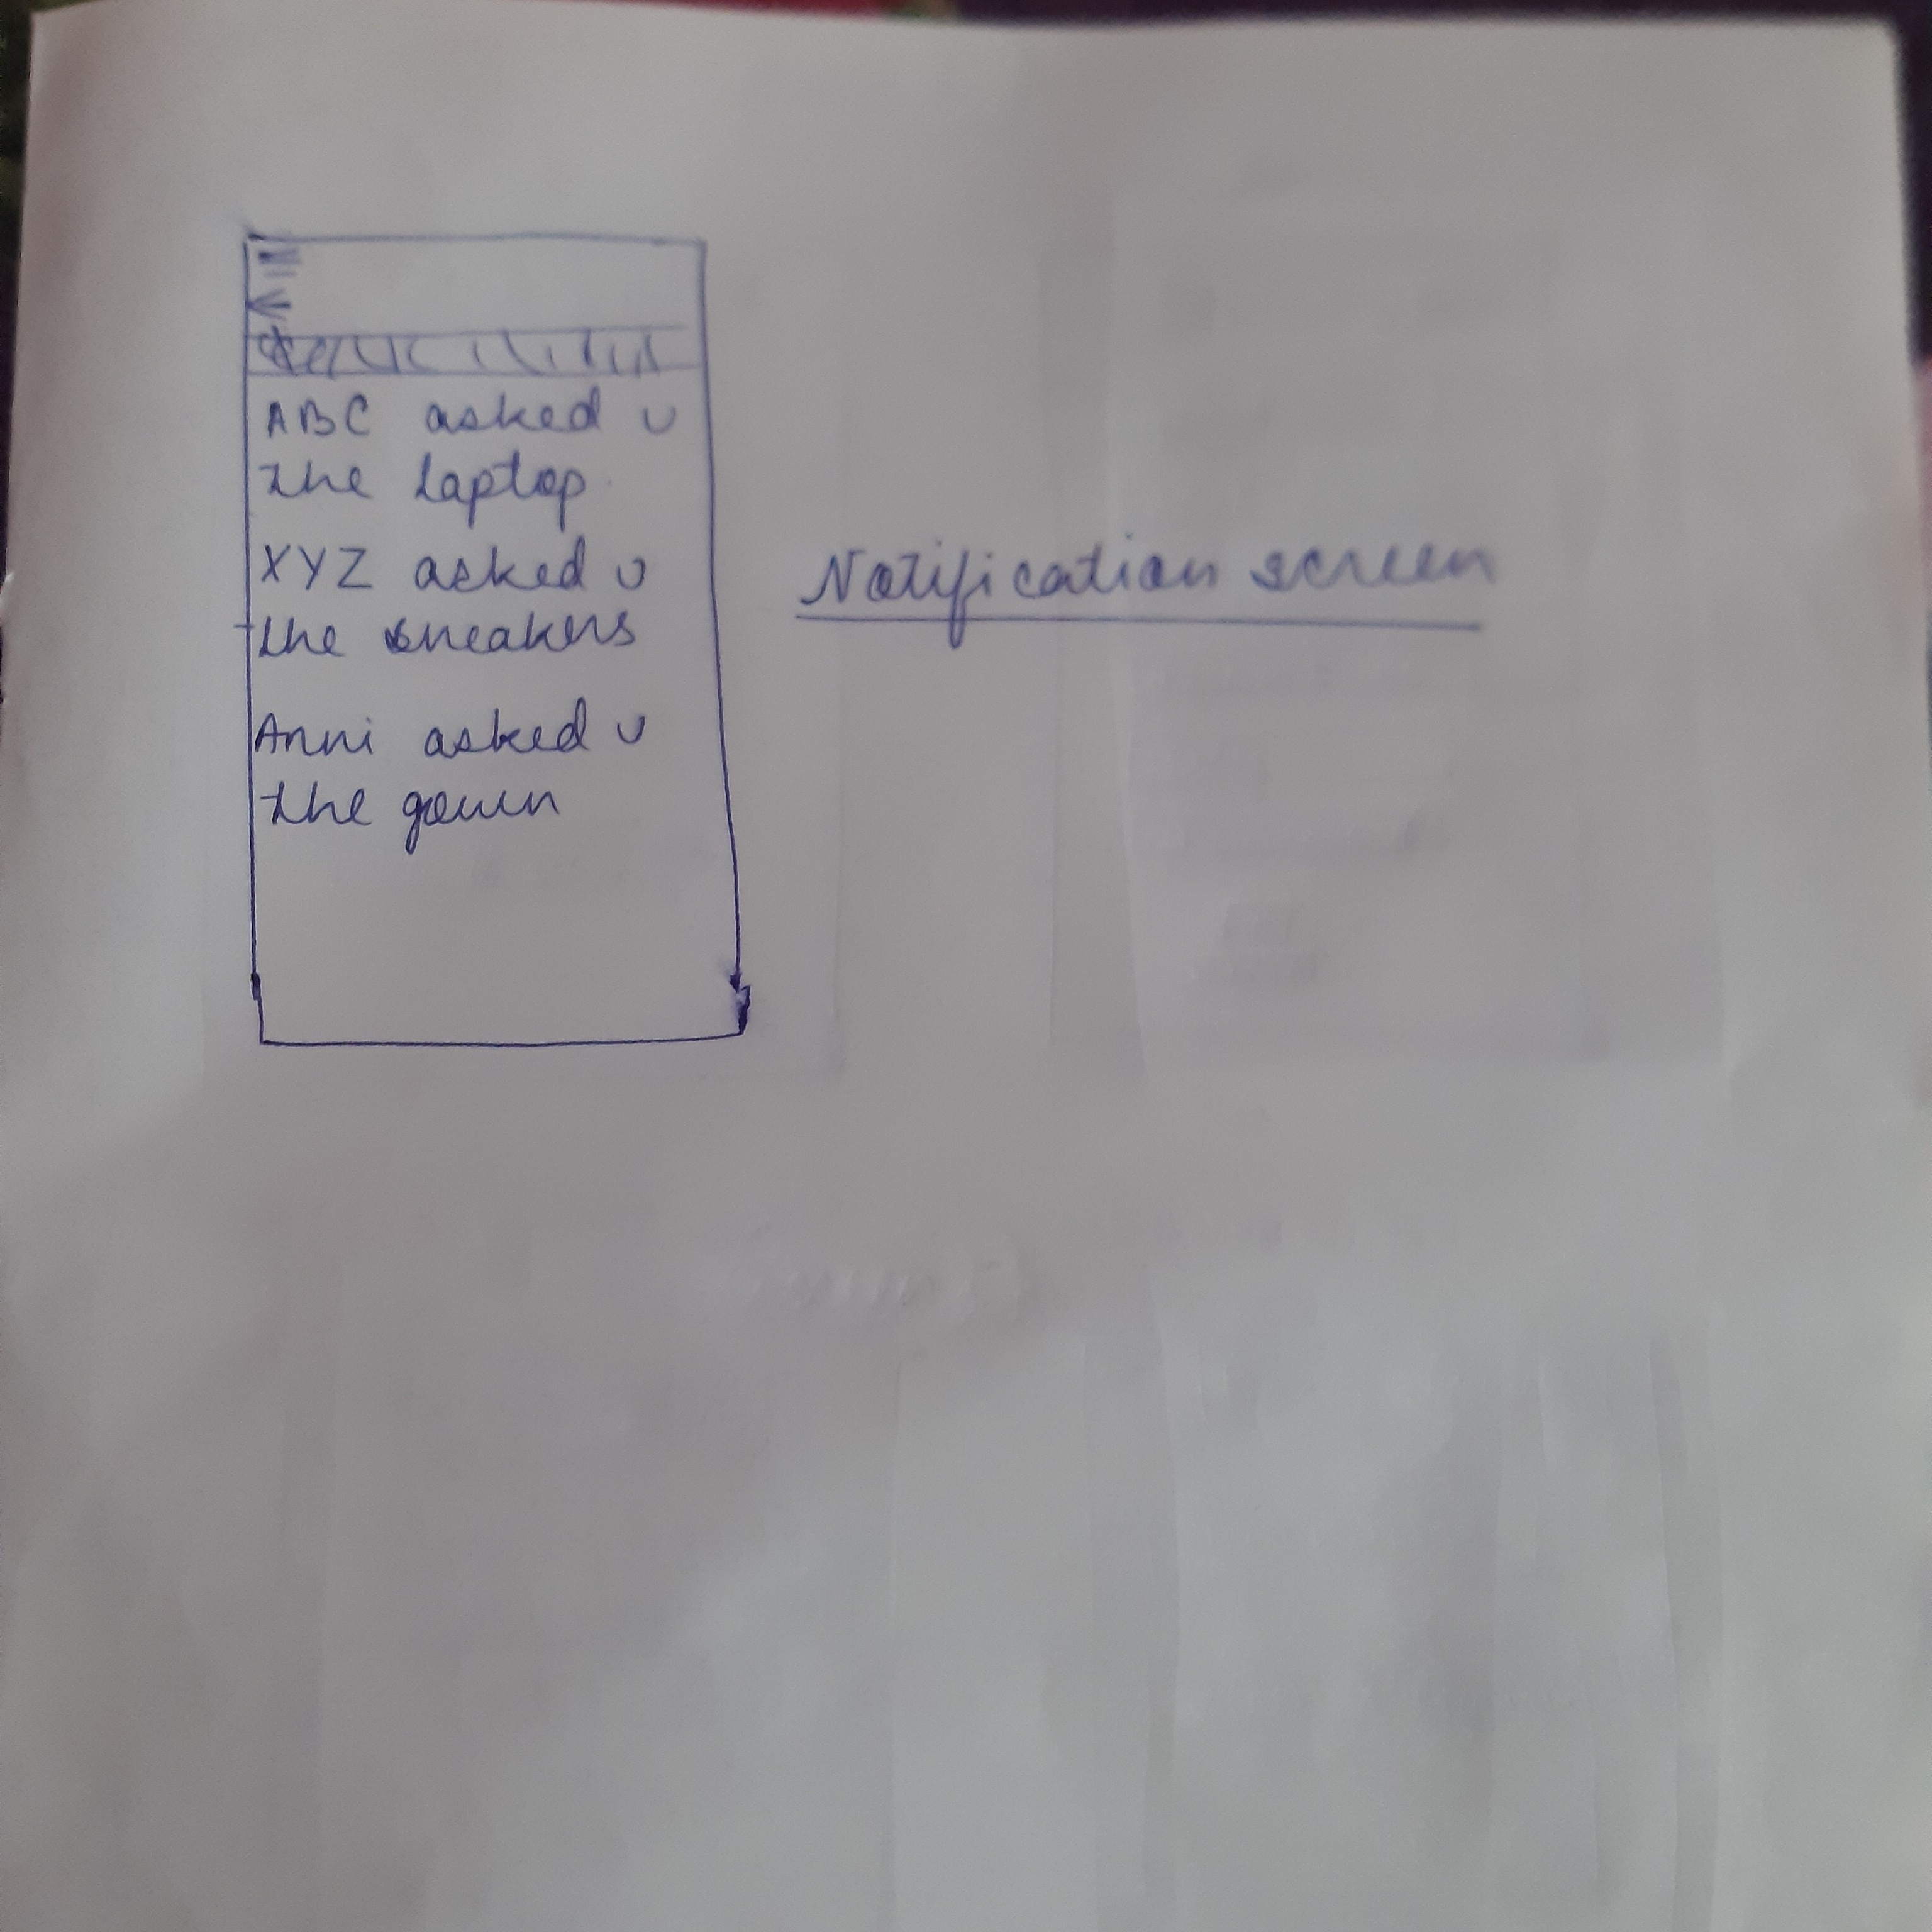 ABC asked u
the laptop
XYZ asked u
the sneakers
Anni asked u
the gown
Notification screen